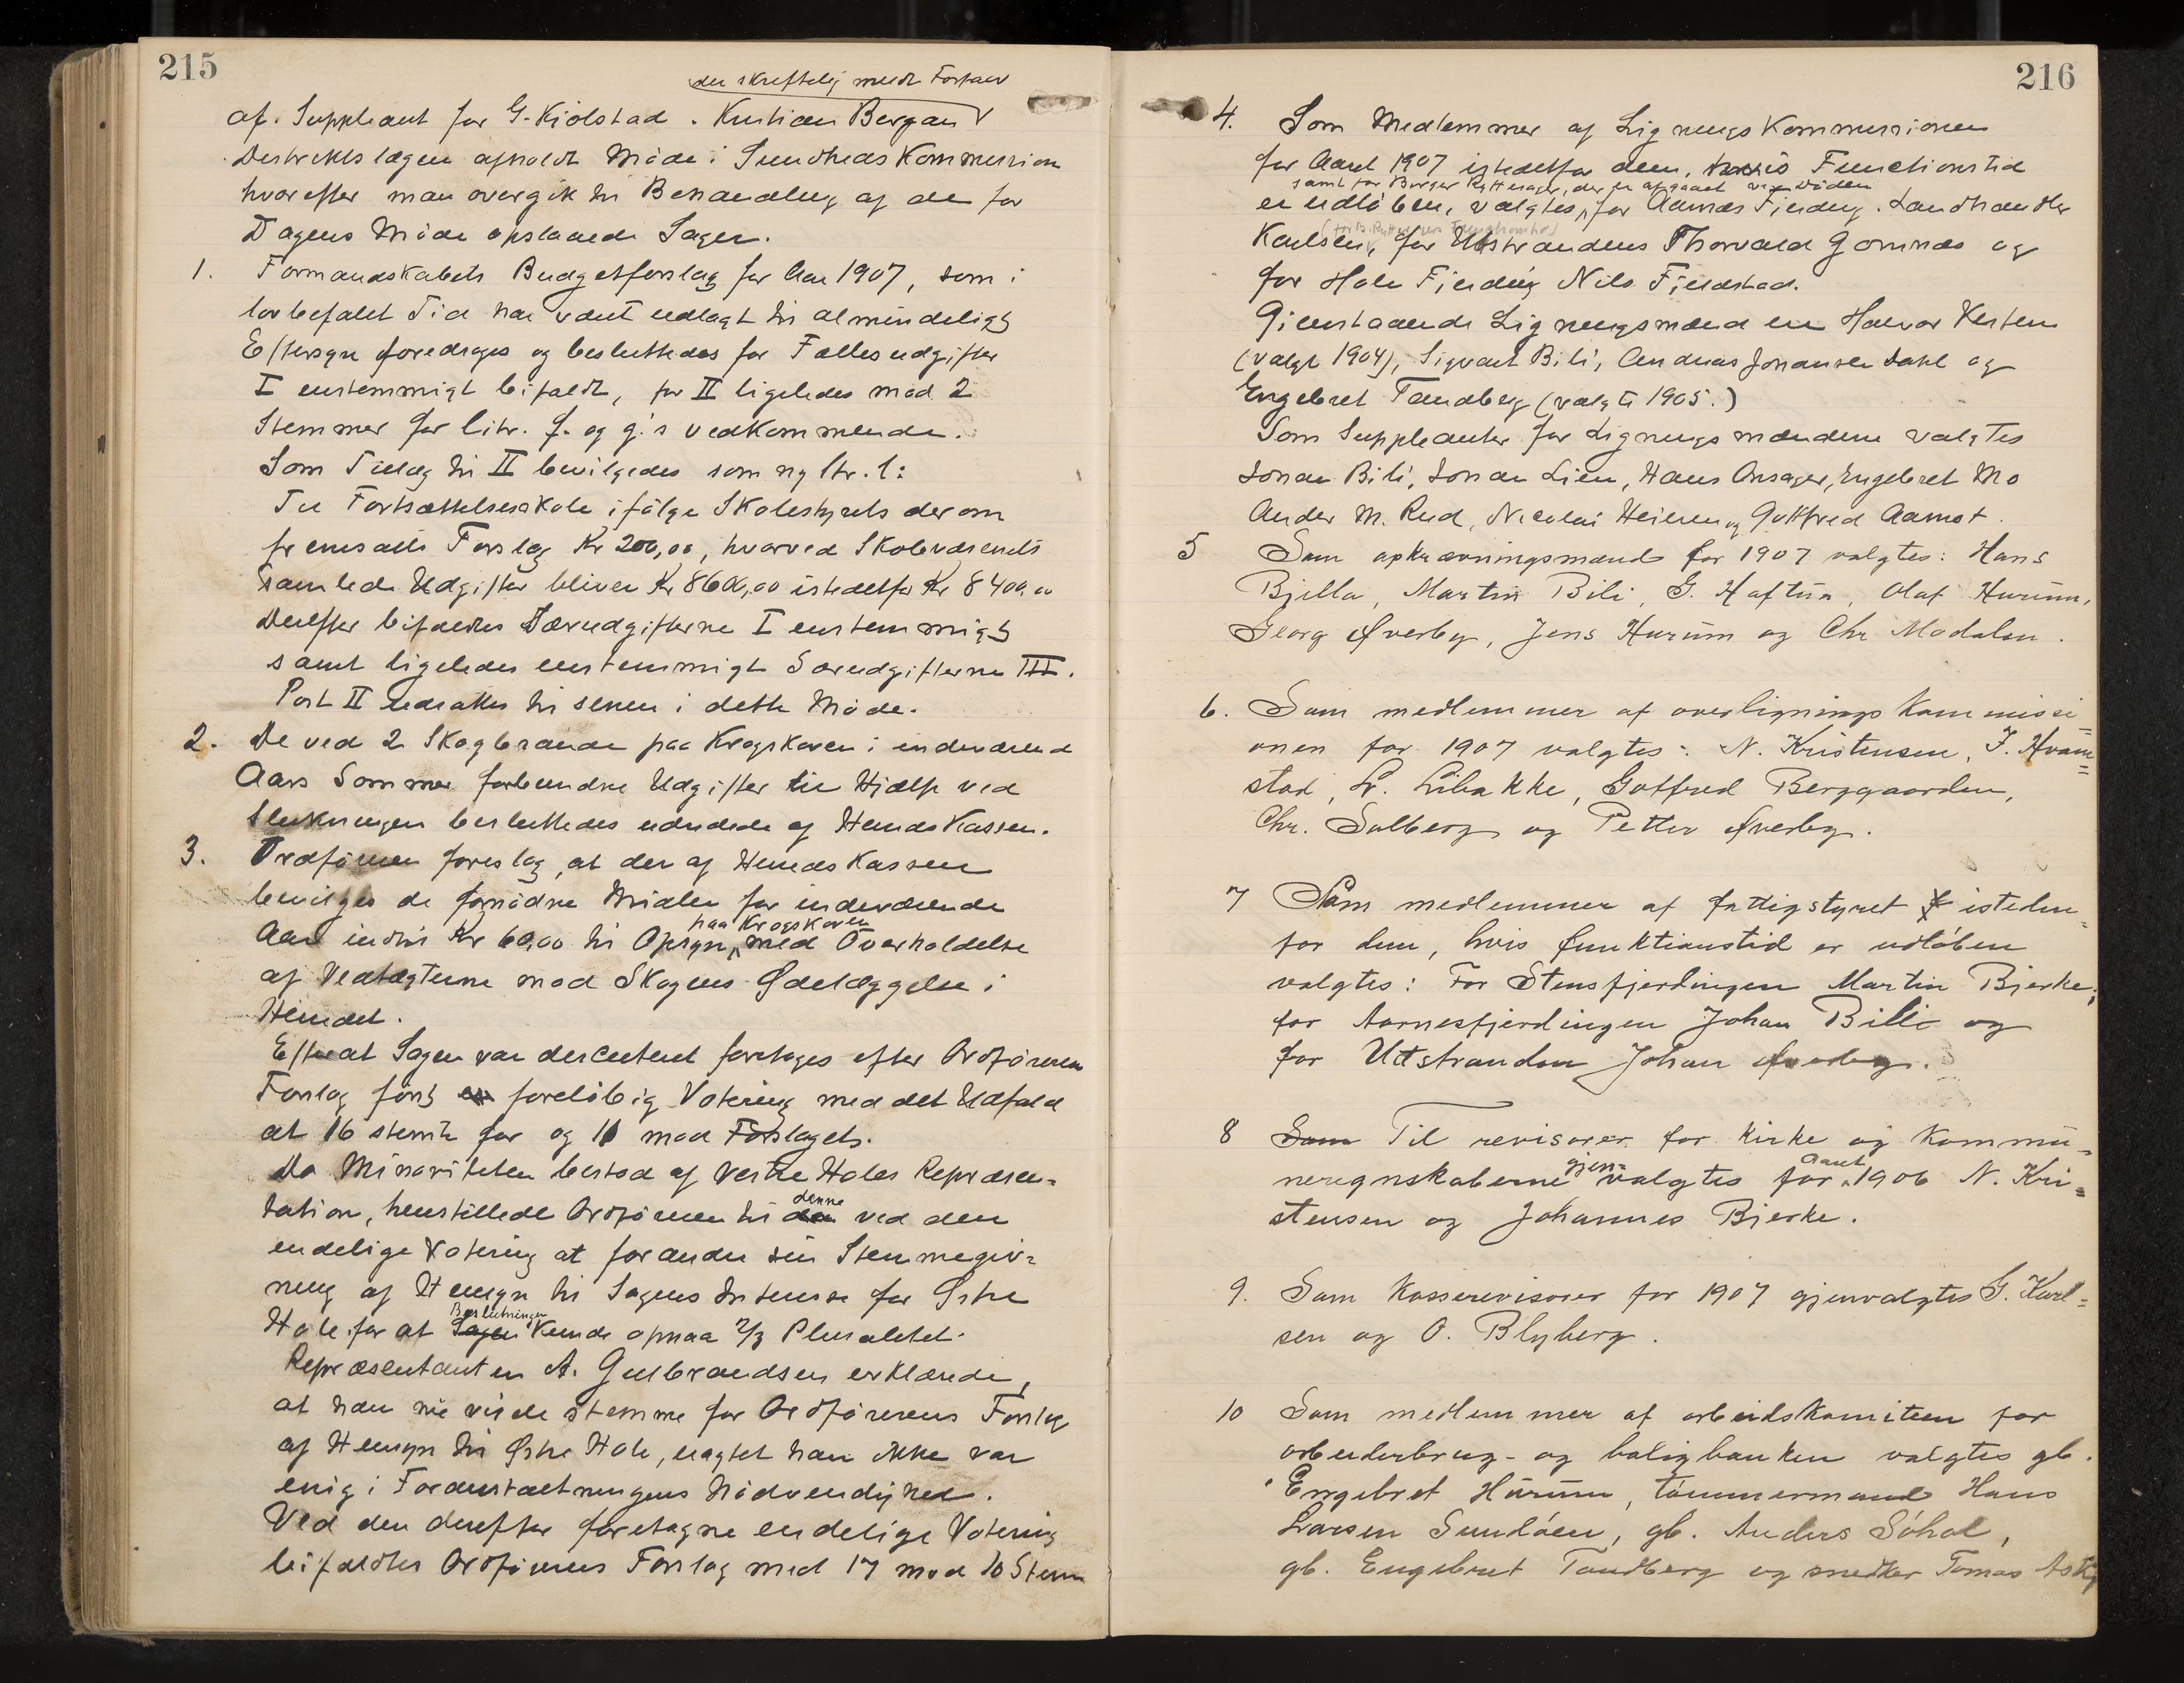 215
der skriftelig meldt Forfald
af. Suppleant for G. Kjölstad. Kristian Bergan
Destriktslægen afholdt Möde i Sundheds Kommission
hvorefter man overgik til Behandling af de for
Dagens Möde opslaaede Sager.
1. Formandskabets Budgetforslag for Aar 1907, som i
lovbefalet Tid har været udlagt til almindeligt
Eftersyn foredroges og besluttedes for Fællesudgifter
I enstemmigt bifaldt, for II ligeledes mod 2
Stemmer for litr. f. og g.'s Vedkommende.
Som Tillæg til II bevilgedes som ny ltr. l:
Til Fortsættelsesskole ifölge Skolestyrets derom
fremsatte Forslag Kr 200,00, hvorved Skolevæsenets
samlede Udgifter bliver Kr 8600,00 istedetfor Kr 8400,00
Derefter bifaldtes Særudgifterne I enstemmigt
samt ligeledes enstemmigt Særudgifterne III.
Post II udsattes til senere i dette Möde.
2. De ved 2 Skogbrande paa Krogskoven i indeværende
Aars Sommer forbundne Udgifter til Hjælp ved
Slukningen besluttedes udredede af Herredskassen.
3. Ordföreren foreslog, at der af Herredskassen
bevilges de fornödne Midler for indeværende
Aar indtil Kr 60,00 til Opsyn paa Krogskoven med Overholdelse
af Vedtægterne mod Skogens Ödelæggelse i
Herredet.
Efterat Sagen var descuteret foretoges efter Ordförerens
Forslag först en foreløbig Votering med det Udfald
at 16 stemte for og 11 mod Forslaget.
Da Minoriteten bestod af Vestre Holes Repræsen=
tation, henstillede Ordföreren til denne ved den
endelige Votering at forandre sin Stemmegiv=
ning af Hensyn til Sagens Interesse for Østre
Hole for at Beslutningen Kunde opnaa 2/3 Pluralitet.
Repræsentanten A. Gulbrandsen erklærede,
at han nu vilde stemme for Ordförerens Forslag
af Hensyn til Østre Hole, uagtet han ikke var
enig i Foranstaltningens Nödvendighed.
Ved den derefter foretagne endelige Votering
bifaldtes Ordförerens Forslag med 17 mod 10 Stem
216
4. Som Medlemmer af Lignings Kommissionen
for Aaret 1907 istedetfor dem, hvis Functionstid
samt for Borger Rytterager, der er afgaaet ved Döden
er udlöben, valgtes, for Aarnæs Fjerding. Landhandler
Karlsen, for Utstrandens Thorvald Gomnæs og
for Hole Fjerding Nils Fjeldstad.
Gjenstaaende Ligningsmænd er Halvor Vesteren
(valgt 1904), Sigvart Bili, Andreas Johansen Dahl og
Engebret Tandberg (valgte 1905.)
Som Suppleanter for Ligningsmændene valgtes
Johan Bili, Johan Lien, Hans Onsager, Engebret Mo
Anders M. Rud, Nicolai Heieren og Gotfred Aamot.
5 Som opkrævningsmænd for 1907 valgtes: Hans
Bjella, Martin Bili, G. Haftun, Olaf Hurum,
Georg Øverby, Jens Hurum og Chr Modalen.
6. Som medlemmer af overlignings kommissi=
onen for 1907 valgtes: N. Kristensen, J. Hvam=
stad, L. Libakke, Gotfred Berggaarden,
Chr. Solberg og Petter Øverby.
7 Som medlemmer af fattigstyret isteden=
for dem, hvis funktionstid er udløben
valgtes: For Stensfjerdingen Martin Bjerke,
for Aarnesfjerdingen Johan Billi og
for Utstranden Johan Øverby.
8 Som Til revisorer for kirke og kommu=
neregnskaberne gjen=valgtes for Aaret 1906 N. Kri=
stensen og Johannes Bjerke.
9. Som kasserevisorer for 1907 gjenvalgtes G. Karl=
sen og O. Blyberg.
10 Som medlemmer af arbeidskomiteen for
arbeiderbrug- og boligbanken valgtes gb.
Engebret Hurum, tømmermand Hans
Larsen Sundöen, gb. Anders Söhol,
gb. Engebret Tandberg og snedker Tomas Ask